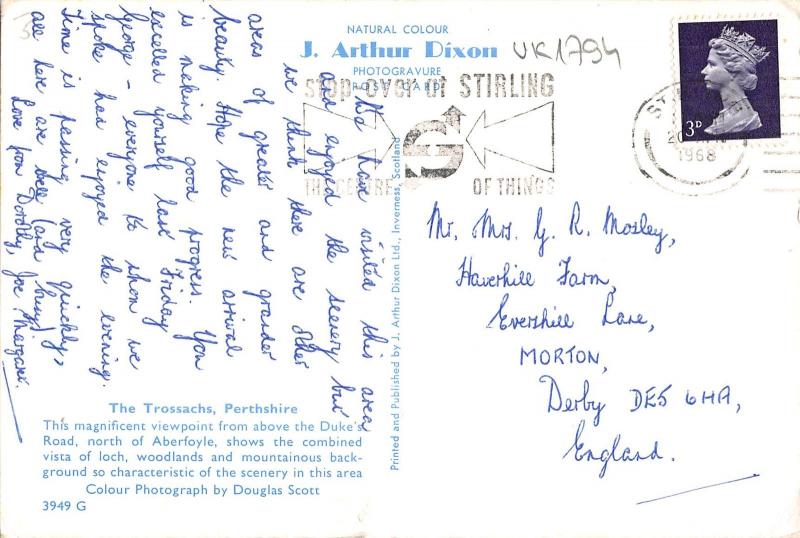 NATURAL COLOUR
J. Arthur Dixon
PHOTOGRAVURE
POST CARD
UK1794
Stop-over at STIRLING
THE CENTRE
OF THINGS
3D
1968
had have visited this area
and enjoyed the scenery but
we think there are other
areas of greater and grander
beauty. Hope the new arrival
is making good progress. You
excelled yourself last Friday
George – everyone to whom we
spoke had enjoyed the evening.
Time is passing very quickly,
all here are well (and busy)
Love from Dorothy, Joe & Margaret.
Mr. Mrs. G. R. Mosley,
Haverhill Farm,
Evershill Lane,
MORTON,
Derby DE5 6HA,
England.
Printed and Published by J. Arthur Dixon Ltd., Inverness, Scotland
The Trossachs, Perthshire
This magnificent viewpoint from above the Duke's
Road, north of Aberfoyle, shows the combined
vista of loch, woodlands and mountainous back-
ground so characteristic of the scenery in this area
Colour Photograph by Douglas Scott
3949 G